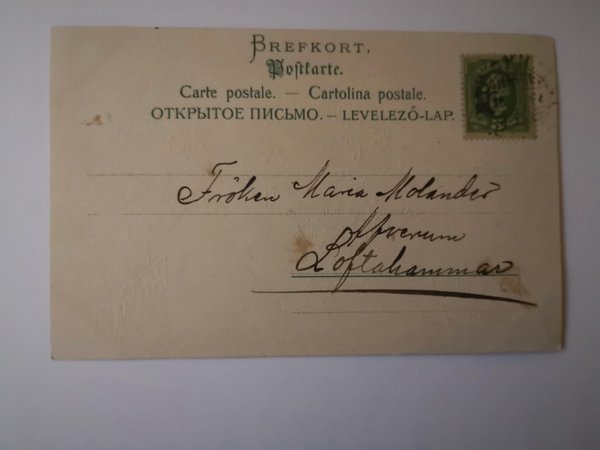 BREFKORT.
Postkarte.
Carte postale. — Cartolina postale.
ОТКРЫТОЕ ПИСЬМО. — LEVELEZŐ-LAP.
Fröken Maria Molander
Loftahammar